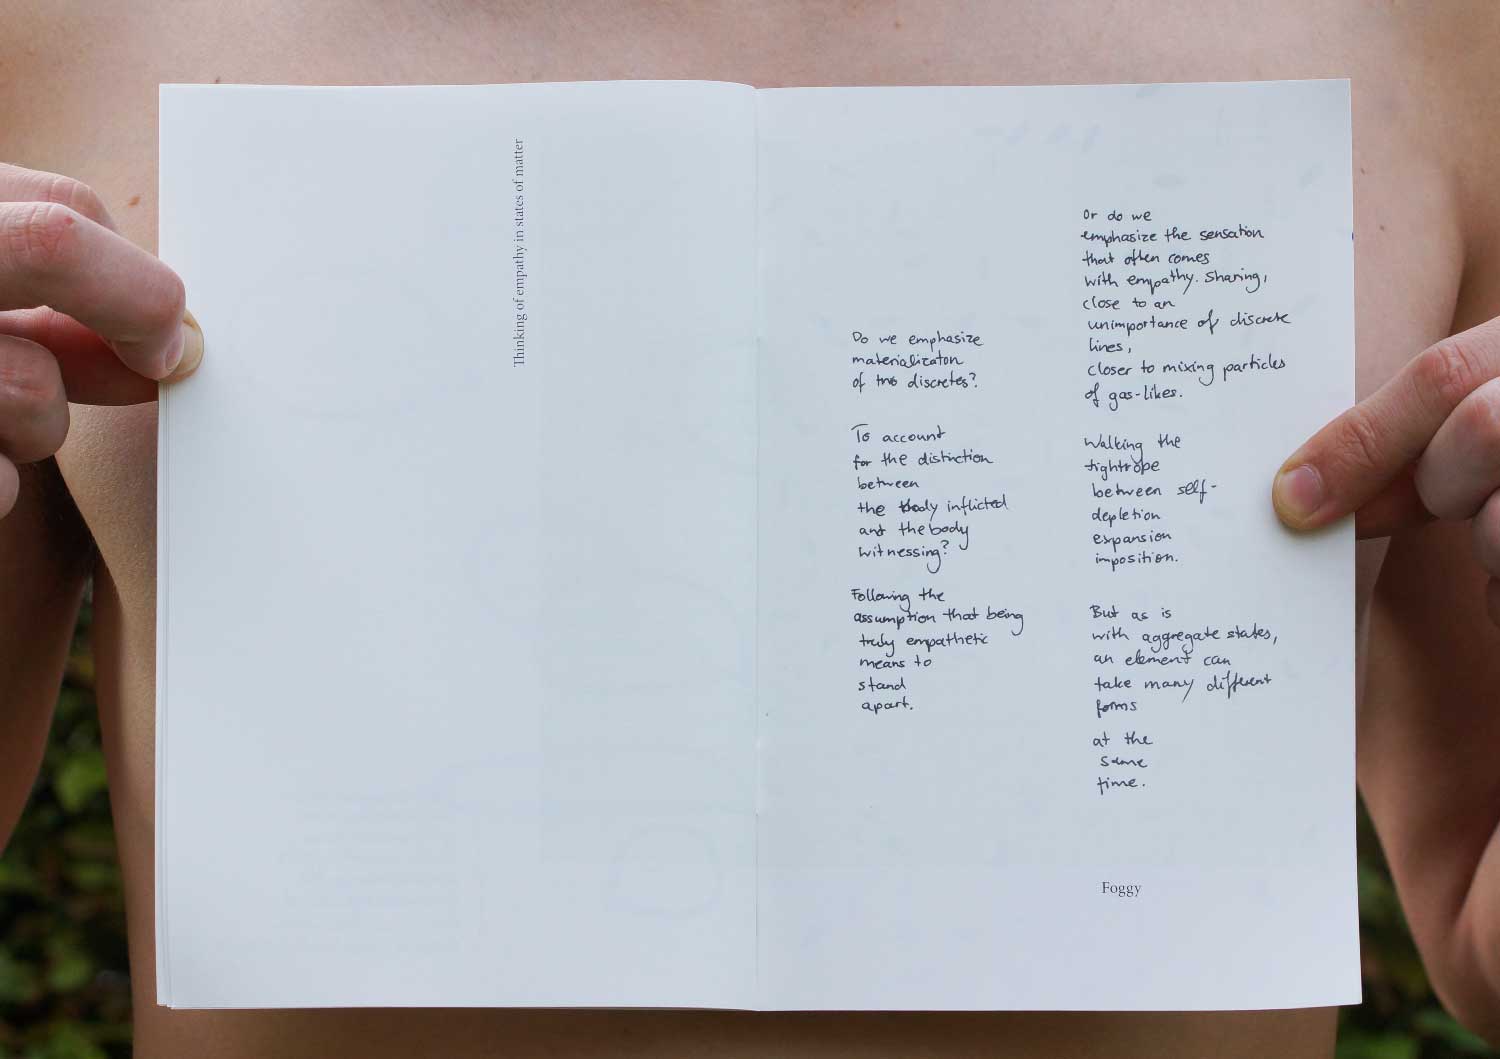 Thinking of empathy in states of matter
Do we emphasize
materializaton
of two discretes?
To account
for the distinction
between
the body inflicted
and the body
witnessing?
Following the
assumption that being
truly empathetic
means to
stand
apart.
Or do we
emphasize the sensation
that often comes
with empathy. Sharing,
close to an
unimportance of discrete
lines,
closer to mixing particles
of gas-likes.
Walking the
tightrope
between self-
depletion
expansion
imposition.
But as is
with aggregate states,
an element can
take many different
forms
at the
same
time.
Foggy